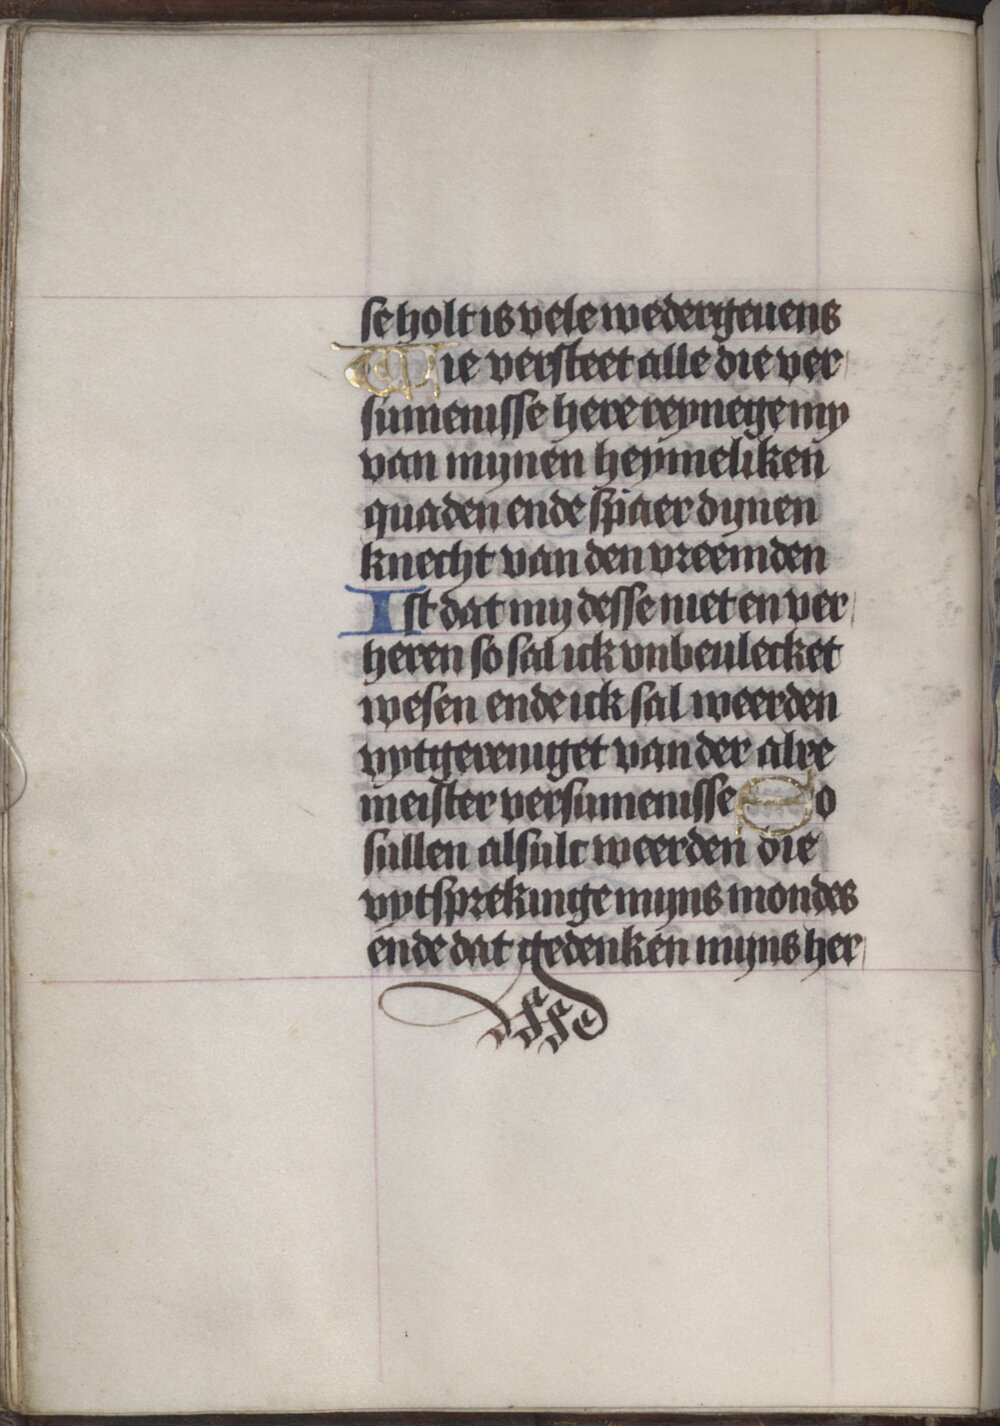 se holt is vele wedergeuens
Wie versteet alle die ver
sumenisse here reynege my
van mynen heymeliken
quaden ende spaer dynen
knecht van den vreemden
Ist dat my desse niet en ver
heren so sal ick vnbeulecket
wesen ende ick sal weerden
vytgereniget van der alre
meister versumenisse So
sullen alsulc weerden die
vytsprekinge myns mondes
ende dat gedenken myns her